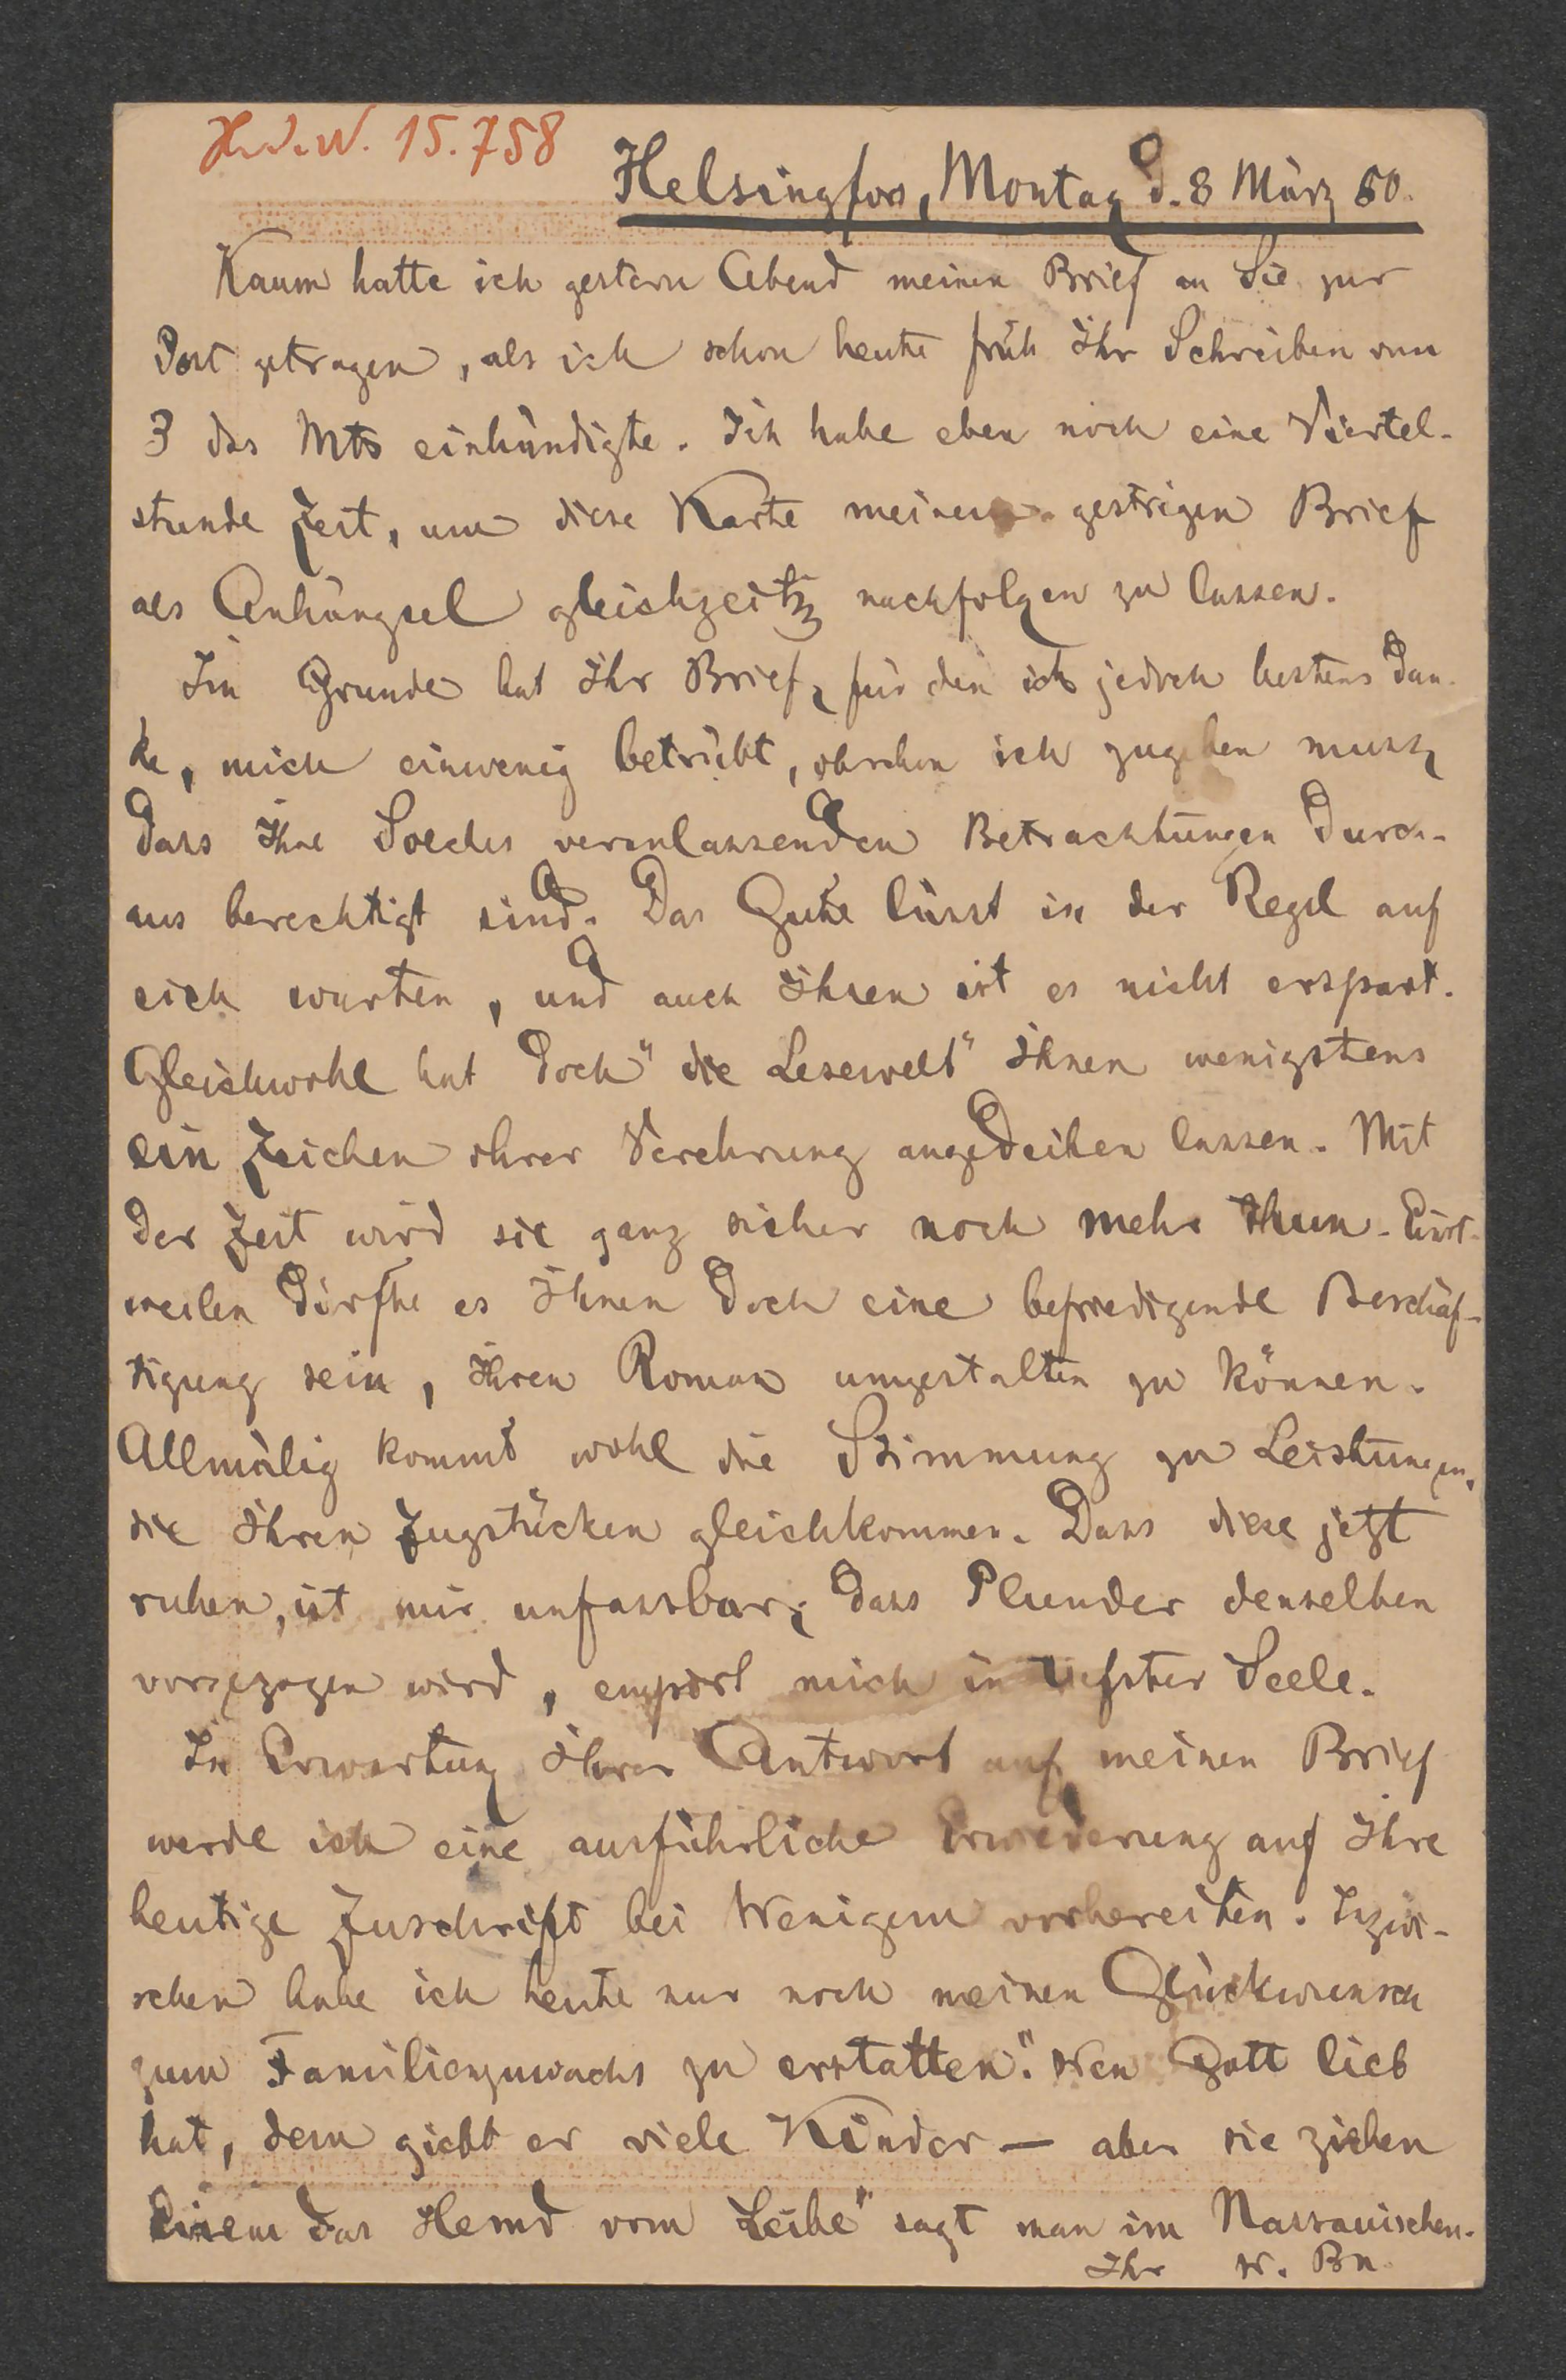 15.758
Helsingfors, Montag d. 8 März 80.
Kaum hatte ich gestern Abend meinen Brief an Sie zur
Post getragen, als ich schon heute früh Ihr Schreiben vom
3 das Mts einhändigte. Ich habe eben noch eine Viertel-
stunde Zeit, um diese Karte meinem gestrigen Brief
als Anhängsel gleichzeitig nachfolgen zu lassen.
Im Grunde hat Ihr Brief, für den ich jedoch bestens dan-
ke, mich einwenig betrübt, obschon ich zugeben muss,
dass Ihre Solches veranlassenden Betrachtungen durch-
aus berechtigt sind. Das Gute lässt in der Regel auf
sich warten, und auch Ihnen ist es nicht erspart.
Gleichwohl hat doch "die Lesewelt" Ihnen wenigstens
ein Zeichen ihrer Verehrung angedeihen lassen. Mit
der Zeit wird sie ganz sicher noch mehr thun. Einst-
weilen dürfte es Ihnen doch eine befriedigende Beschäf-
tigung sein, Ihren Roman umgestalten zu können.
Allmälig kommt wohl die Stimmung zu Leistungen,
die Ihren Zugstücken gleichkommen. Dass diese jetzt
ruhen, ist mir unfassbar; dass Plunder denselben
vorgezogen wird, empört mich in tiefster Seele.
In Erwartung Ihrer Antwort auf meinen Brief
werde ich eine ausführliche Erwiederung auf Ihre
heutige Zuschrift bei Wenigem vorbereiten. Inzwi-
schen habe ich heute nur noch meinen Glückwunsch
zum Familienzuwachs zu erstatten. "Wen Gott lieb
hat, dem giebt er viele Kinder — aber sie ziehen
Einem das Hemd vom Leibe" sagt man im Nassauischen.
Ihr W. Bn